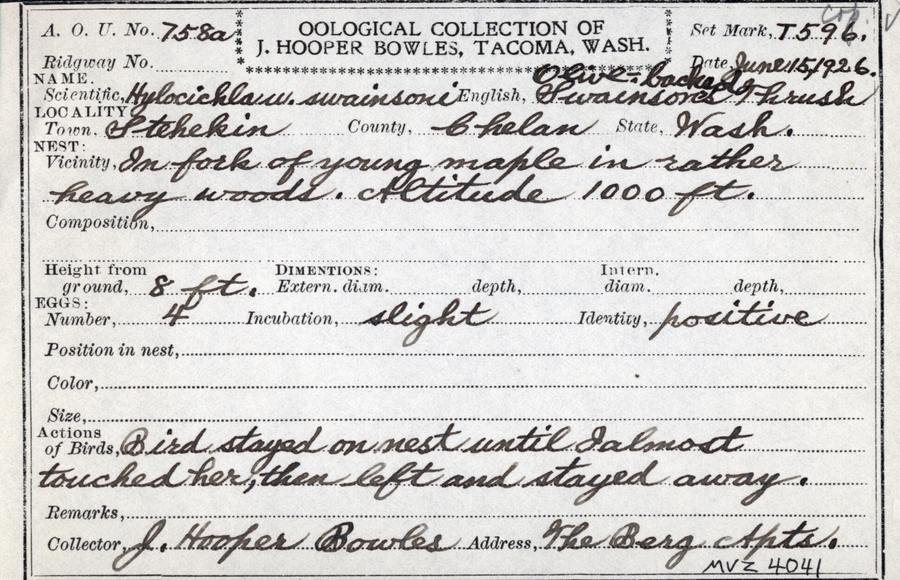 cop.
A. O. U. No. 758a OOLOGICAL COLLECTION OF Set Mark, T596.
J. HOOPER BOWLES, TACOMA, WASH.
Ridgway No. Date, June 15, 1926.
NAME. Olive-backed
Scientific, Hylocichla u. swainsoni English, Swainson's Thrush
LOCALITY
Town, Stehekin County, Chelan State, Wash.
NEST:
Vicinity, In fork of young maple in rather
heavy woods. Altitude 1000 ft.
Composition,
Height from DIMENTIONS: Intern.
ground, 8 ft. Extern. diam. depth, diam. depth,
EGGS:
Number, 4 Incubation, slight Identity, positive
Position in nest,
Color,
Size,
Actions
of Birds, Bird stayed on nest until I almost
touched her, then left and stayed away.
Remarks,
Collector, J. Hooper Bowles Address, The Berg Apts.
MVZ 4041